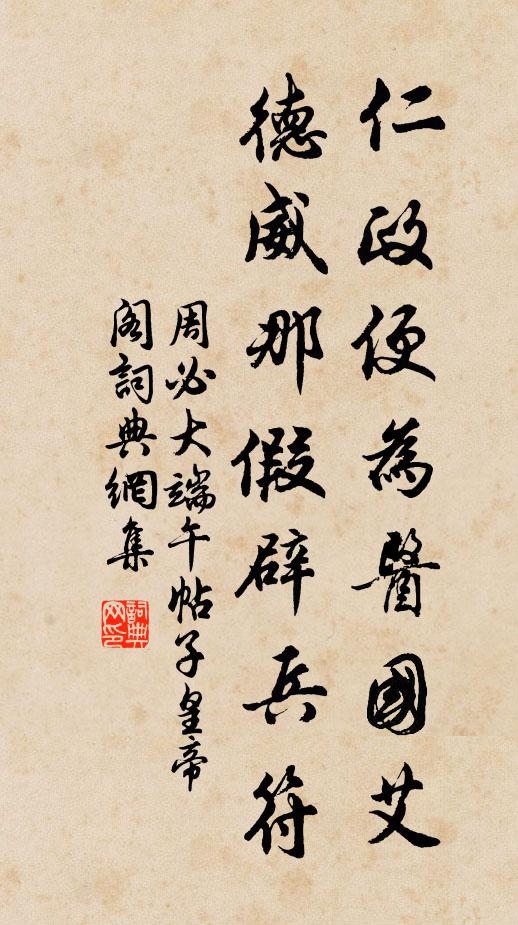 仁政便為醫國艾
德威那假辟兵符
周必大端午帖子皇帝
閣詞典網集
詞典网印